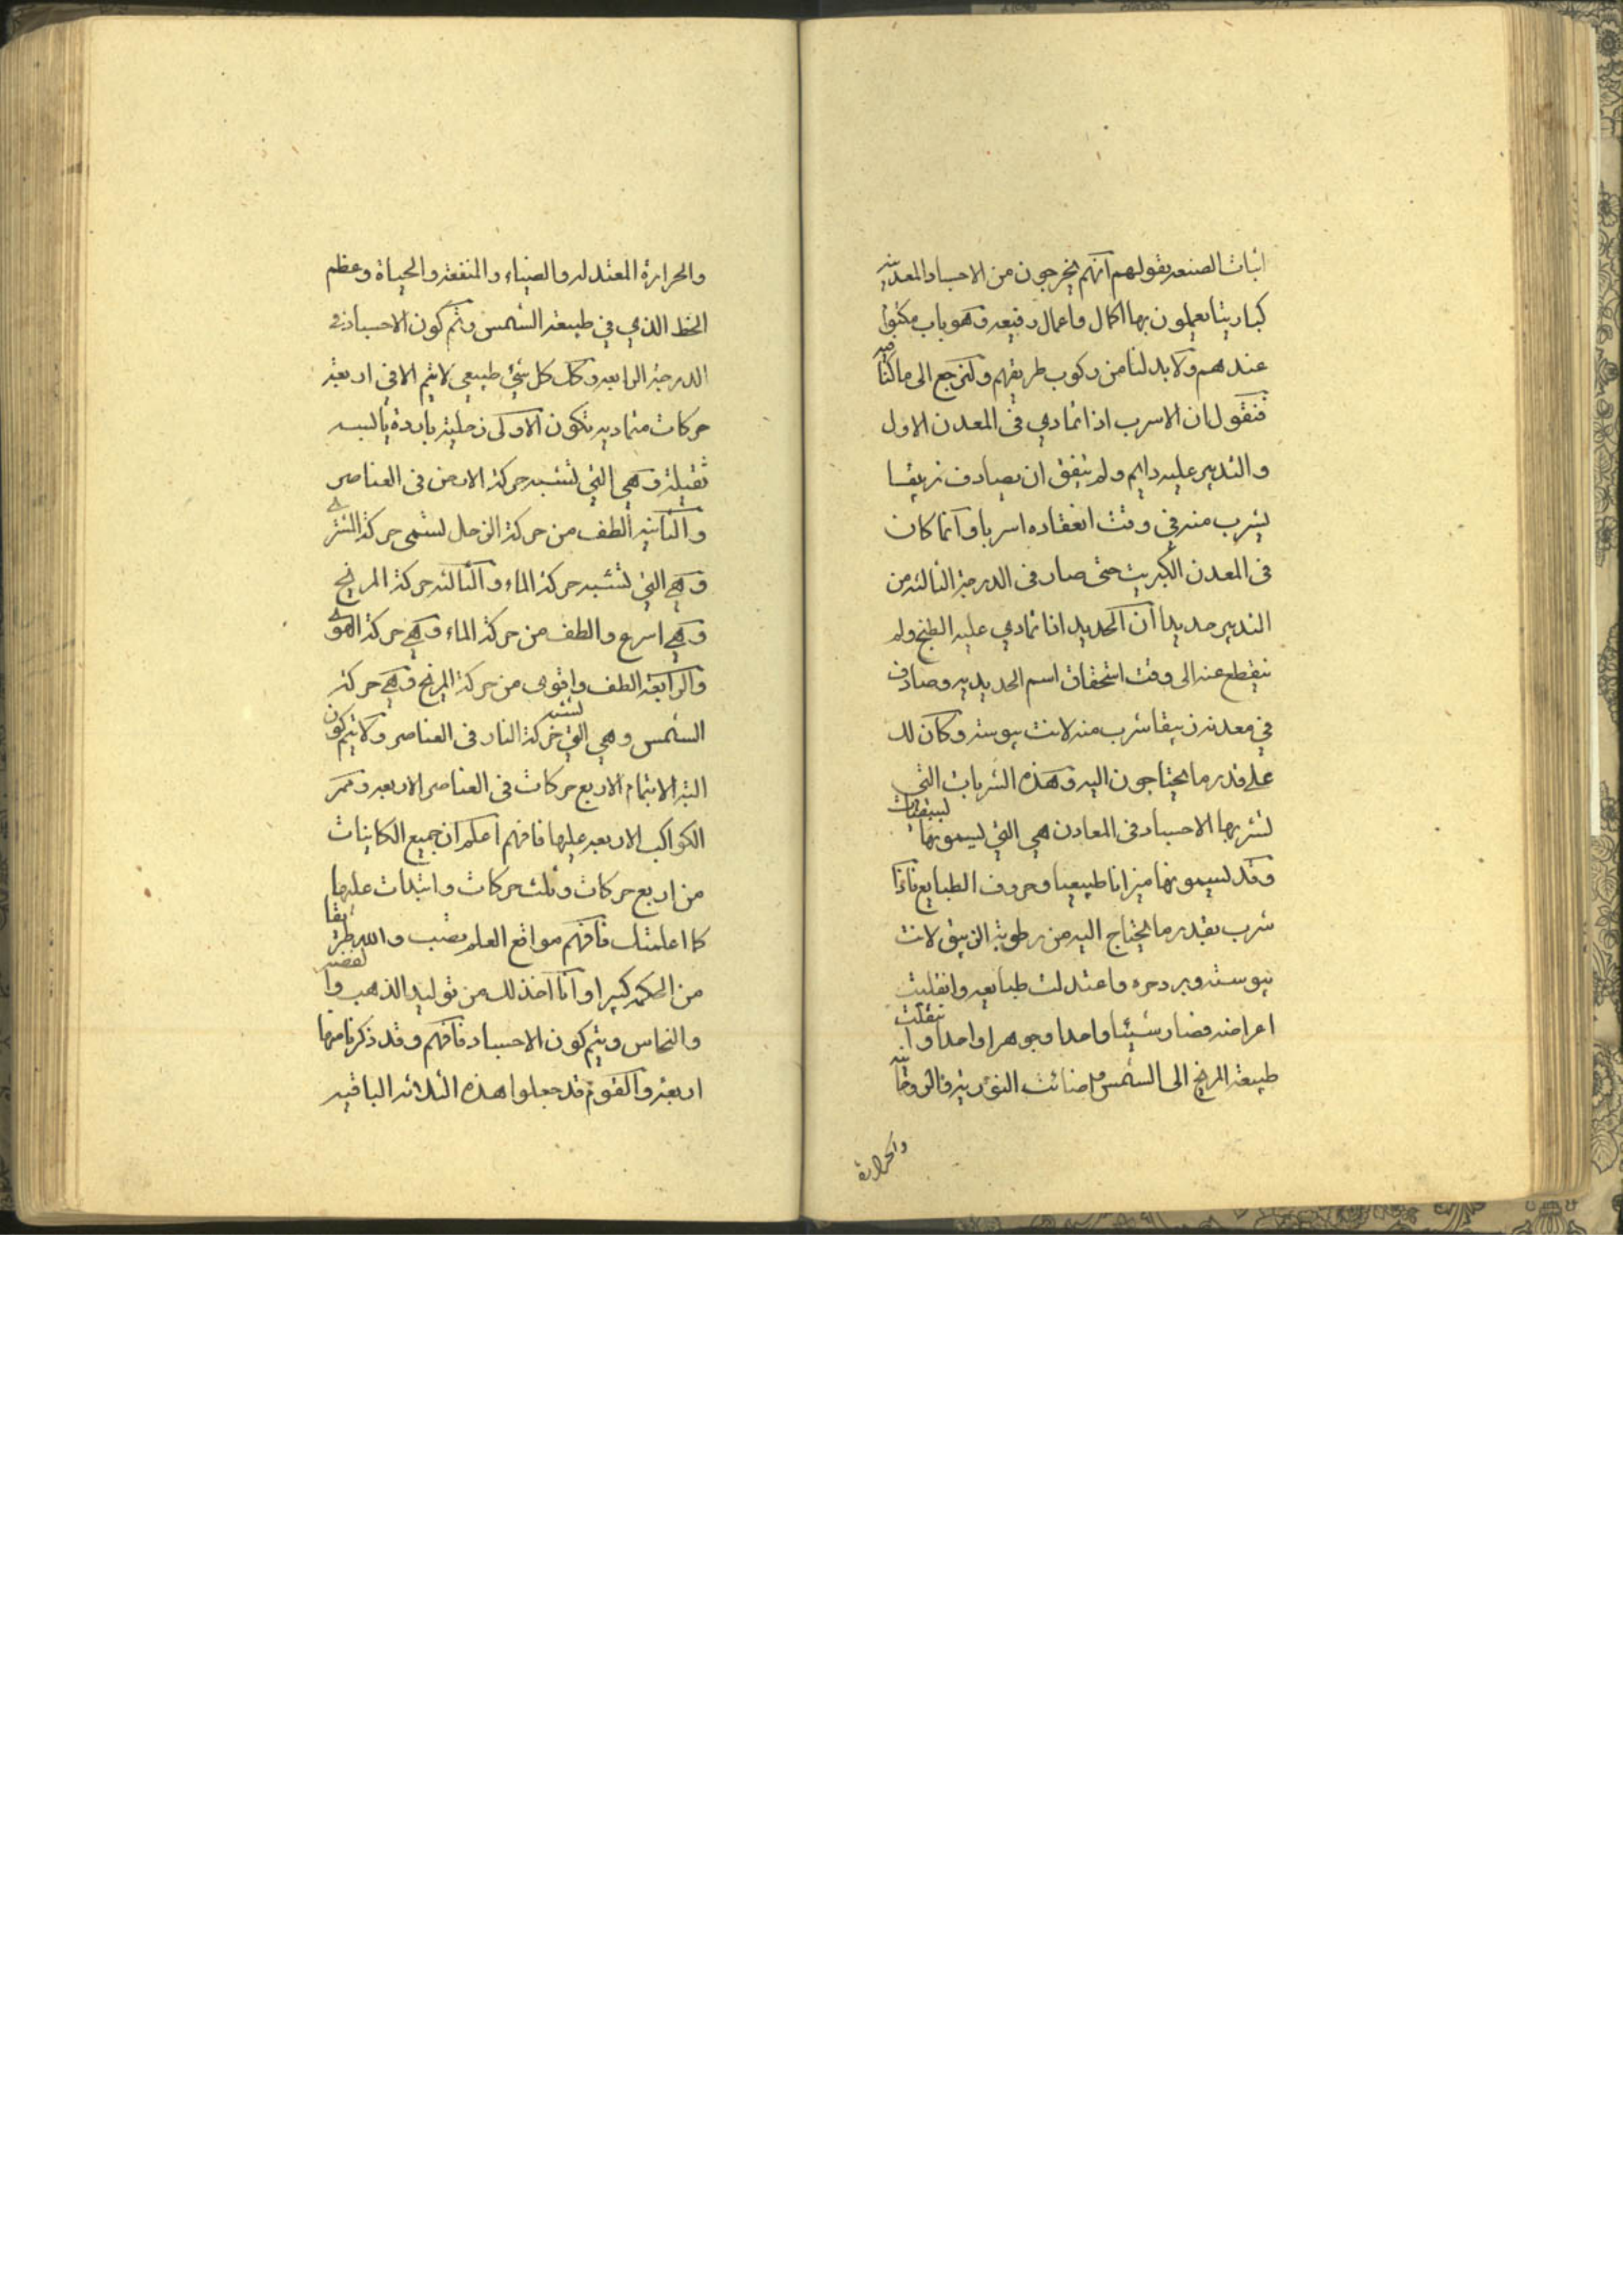 اثبات الصنعه بقولهم انهم يخرجون من الاجساد المعدنيه
كباريتا يعملون بها اكمال واعمال رفيعه وهو باب مكتوم
عندهم ولا بد لنا من ركوب طريقهم ولنرجع الى ما كنا فيه
فنقول ان الاسرب اذا تمادي فى المعدن الاول
والتدبير عليه دايم ولم يتفق ان يصادف زيبقا
يشرب منه في وقت انعقاده اسربا وانما كان
فى المعدن الكبريت حتى صار فى الدرجة الثالثه من
التدبير حديدا ان الحديد اذا تمادي عليه الطبخ ولم
ينقطع عنه الى وقت استحقاق اسم الحديديه وصادف
في معدنه زيبقا شرب منه لانت يبوسته وكان له
على قدر ما يحتاجون اليه وهذه الشربات التى
تشربها الاجساد فى المعادن هي التي يسمونها
وقد يسمونها ميزانا طبيعيا وحروف الطبايع فاذا
شرب بقدر ما يحتاج اليه من رطوبة الزيبق لانت
يبوسته وبرد حره واعتدلت طبايعه وانقلبت
اعراضه فصار شيئا واحدا وجوهرا واحدا وانتقلت
طبيعة المريخ الى الشمس اضائت النورية والروحانيه
والحرارة
والحرارة المعتدله والضياء والمنفعة والحياة وعظم
الخط الذي في طبيعة الشمس وتم كون الاجساد في
الدرجة الرابعه وكك كل شئ طبيعي لا يتم الا في اربعة
حركات متماديه تكون الاولى زحلية بارده يابسه
ثقيلة وهي التي تشبه حركة الارض فى العناصر
والثانيه الطف من حركة الزحل تسمى حركة المشترى
وهي التي تشبه حركة الماء والثالثه حركة المريخ
وهي اسرع والطف من حركة الماء وهي حركة الهوى
والرابعة الطف واقوى من حركة المريخ وهي حركة
الشمس وهي التي تشبه حركة النار فى العناصر ولا يتم كون
البتة الا بتمام الاربع حركات فى العناصر الاربعه وممر
الكواكب الاربعه عليها فافهم اعلم ان جميع الكاينات
من اربع حركات وثلث حركات وابتدات عليها
كما اعلمتك فافهم مواقع العلم تصب والله طريقا
من الحكمه كبيرا وانا آخذ لك من توليد الذهب والفضه
والنحاس ويتم كون الاجساد فافهم وقد ذكرنا منها
اربعة والقوم قد جعلوا هذه الثلاثه الباقيه